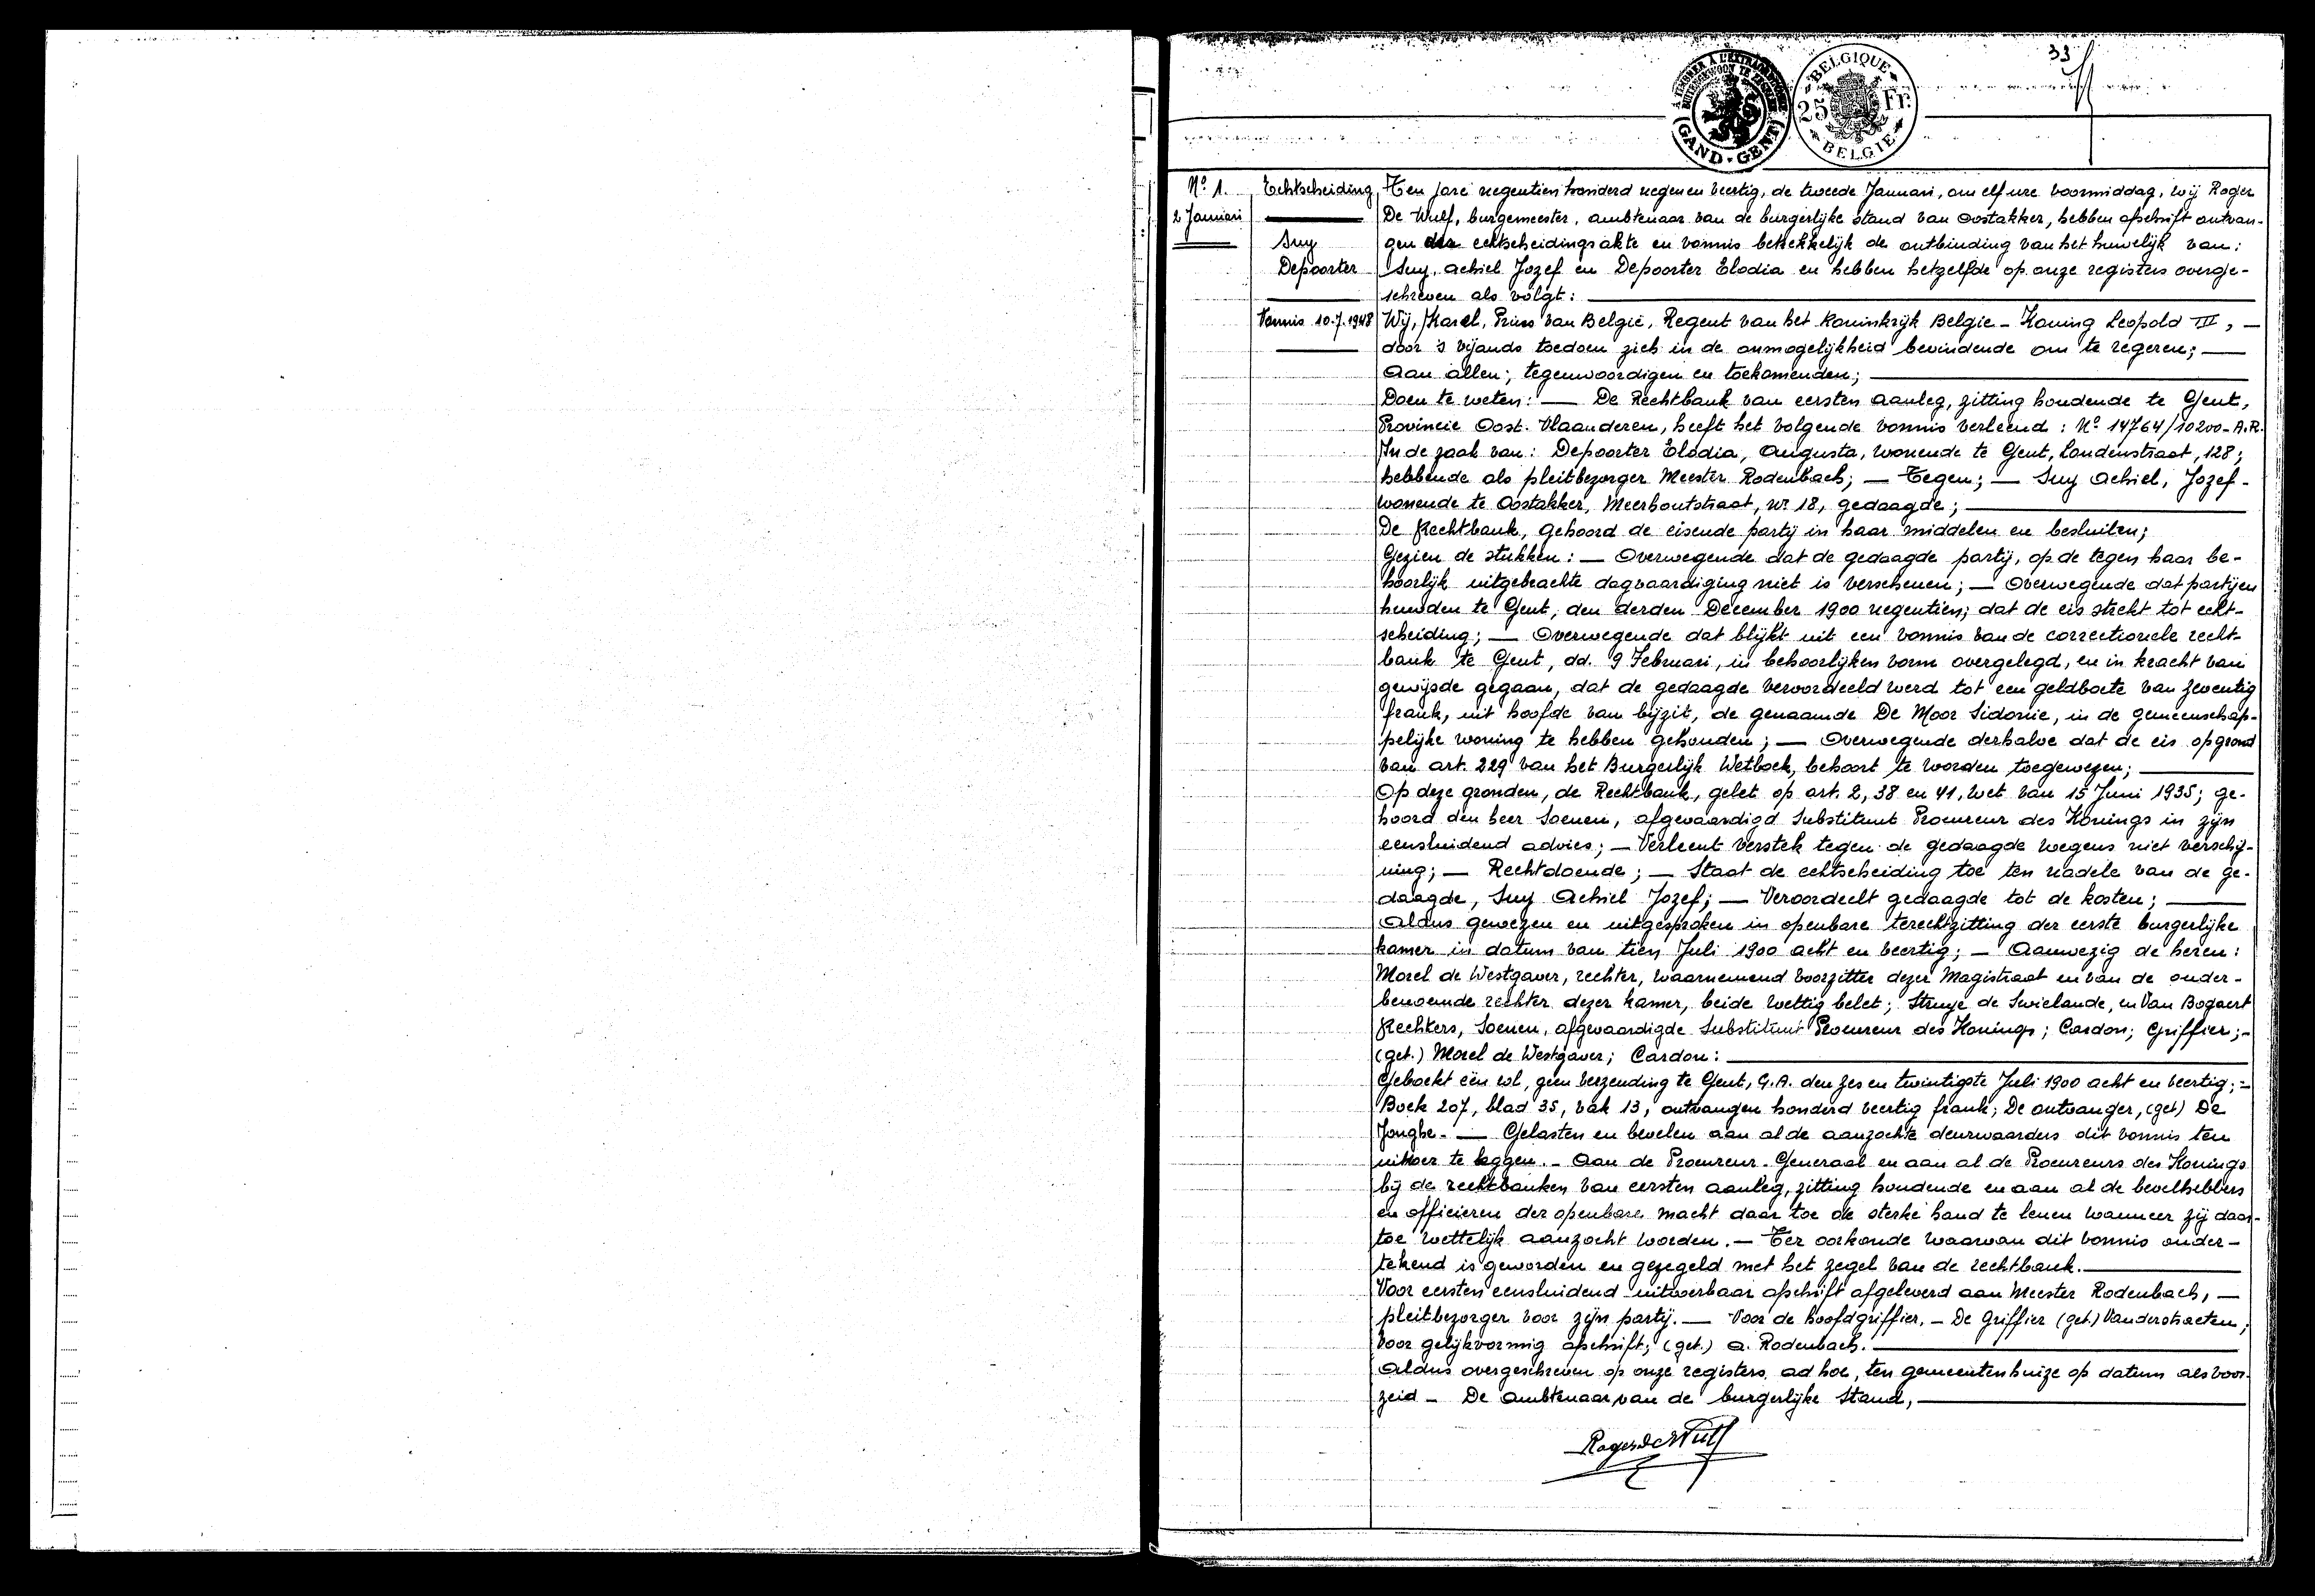 33
A TIMBRER A L'EXTRAORDINAIRE
BUITENGEWOON TE ZEGELEN
GAND - GENT
BELGIQUE
25 Fr.
BELGIE
Nº 1.
2 Januari
Echtscheiding
Suy
Depoorter
Vonnis 10.7.1948
Ten jare negentien honderd negen en veertig, de tweede Januari, om elf ure voormiddag, wij Roger
De Wulf, burgemeester, ambtenaar van de burgerlijke stand van Oostakker, hebben afschrift ontvan-
gen der echtscheidingsakte en vonnis betrekkelijk de ontbinding van het huwelijk van:
Suy, Achiel Jozef en Depoorter Elodia en hebben hetzelfde op onze registers overge-
schreven als volgt:
Wij, Karel, Prins van Belgie, Regent van het Koninkrijk Belgie - Koning Leopold III, —
door 's vijands toedoen zich in de onmogelijkheid bevindende om te regeren; —
Aan allen; tegenwoordigen en toekomenden;
Doen te weten: — De Rechtbank van eersten aanleg, zitting houdende te Gent,
Provincie Oost-Vlaanderen, heeft het volgende vonnis verleend: Nº 14764/10200-A.R.
In de zaak van: Depoorter Elodia, Augusta, wonende te Gent, Londenstraat, 128;
hebbende als pleitbezorger Meester Rodenbach; — Tegen; — Suy Achiel, Jozef -
wonende te Oostakker, Meerhoutstraat, nr 18, gedaagde;
De Rechtbank, gehoord de eisende partij in haar middelen en besluiten;
Gezien de stukken: — Overwegende dat de gedaagde partij, op de tegen haar be-
hoorlijk uitgebrachte dagvaardiging niet is verschenen; — Overwegende dat partijen
huwden te Gent, den derden December 1900 negentien; dat de eis strekt tot echt-
scheiding; — Overwegende dat blijkt uit een vonnis van de correctionele recht-
bank te Gent, dd. 9 Februari, in behoorlijken vorm overgelegd, en in kracht van
gewijsde gegaan, dat de gedaagde veroordeeld werd tot een geldboete van zeventig
frank, uit hoofde van bijzit, de genaamde De Moor Sidonie, in de gemeenschap-
pelijke woning te hebben gehouden; — Overwegende derhalve dat de eis op grond
van art. 229 van het Burgerlijk Wetboek, behoort te worden toegewezen;
Op deze gronden, de Rechtbank, gelet op art. 2, 38 en 41, wet van 15 Juni 1935; ge-
hoord den heer Soenen, afgevaardigd Substituut Procureur des Konings in zijn
eensluidend advies; — Verleent verstek tegen de gedaagde wegens niet verschij-
ning; — Rechtdoende; — Staat de echtscheiding toe ten nadele van de ge-
daagde, Suy Achiel Jozef; — Veroordeelt gedaagde tot de kosten;
Aldus gewezen en uitgesproken in openbare terechtzitting der eerste burgerlijke
kamer in datum van tien Juli 1900 acht en veertig; — Aanwezig de heren:
Morel de Westgaver, rechter, waarnemend voorzitter dezer Magistraat en van de onder-
benoemde rechter dezer kamer, beide wettig belet; Struye de Swielande, en Van Bogaert
Rechters, Soenen, afgevaardigde Substituut Procureur des Konings; Cardon; Griffier; -
(get.) Morel de Westgaver; Cardon:
Geboekt één rol, geen verzending te Gent, G.A. den zes en twintigste Juli 1900 acht en veertig; -
Boek 207, blad 35, vak 13, ontvangen honderd veertig frank; De ontvanger, (get) De
Jonghe. — Gelasten en bevelen aan al de aanzochte deurwaarders dit vonnis ten
uitvoer te leggen. - Aan de Procureur-Generaal en aan al de Procureurs des Konings
bij de rechtbanken van eersten aanleg, zitting houdende en aan al de bevelhebbers
en officieren der openbare macht daar toe de sterke hand te lenen wanneer zij daar-
toe wettelijk aanzocht worden. — Ter oorkonde waarvan dit vonnis onder-
tekend is geworden en gezegeld met het zegel van de rechtbank.
Voor eersten eensluidend uitvoerbaar afschrift afgeleverd aan Meester Rodenbach, —
pleitbezorger voor zijn partij. — Voor de hoofdgriffier. - De Griffier (get.) Vanderstraeten;
Voor gelijkvormig afschrift; (get.) A. Rodenbach.
Aldus overgeschreven op onze registers, ad hoc, ten gemeentenhuize op datum als voor-
zeid - De Ambtenaar van de burgerlijke Stand,
Roger De Wulf